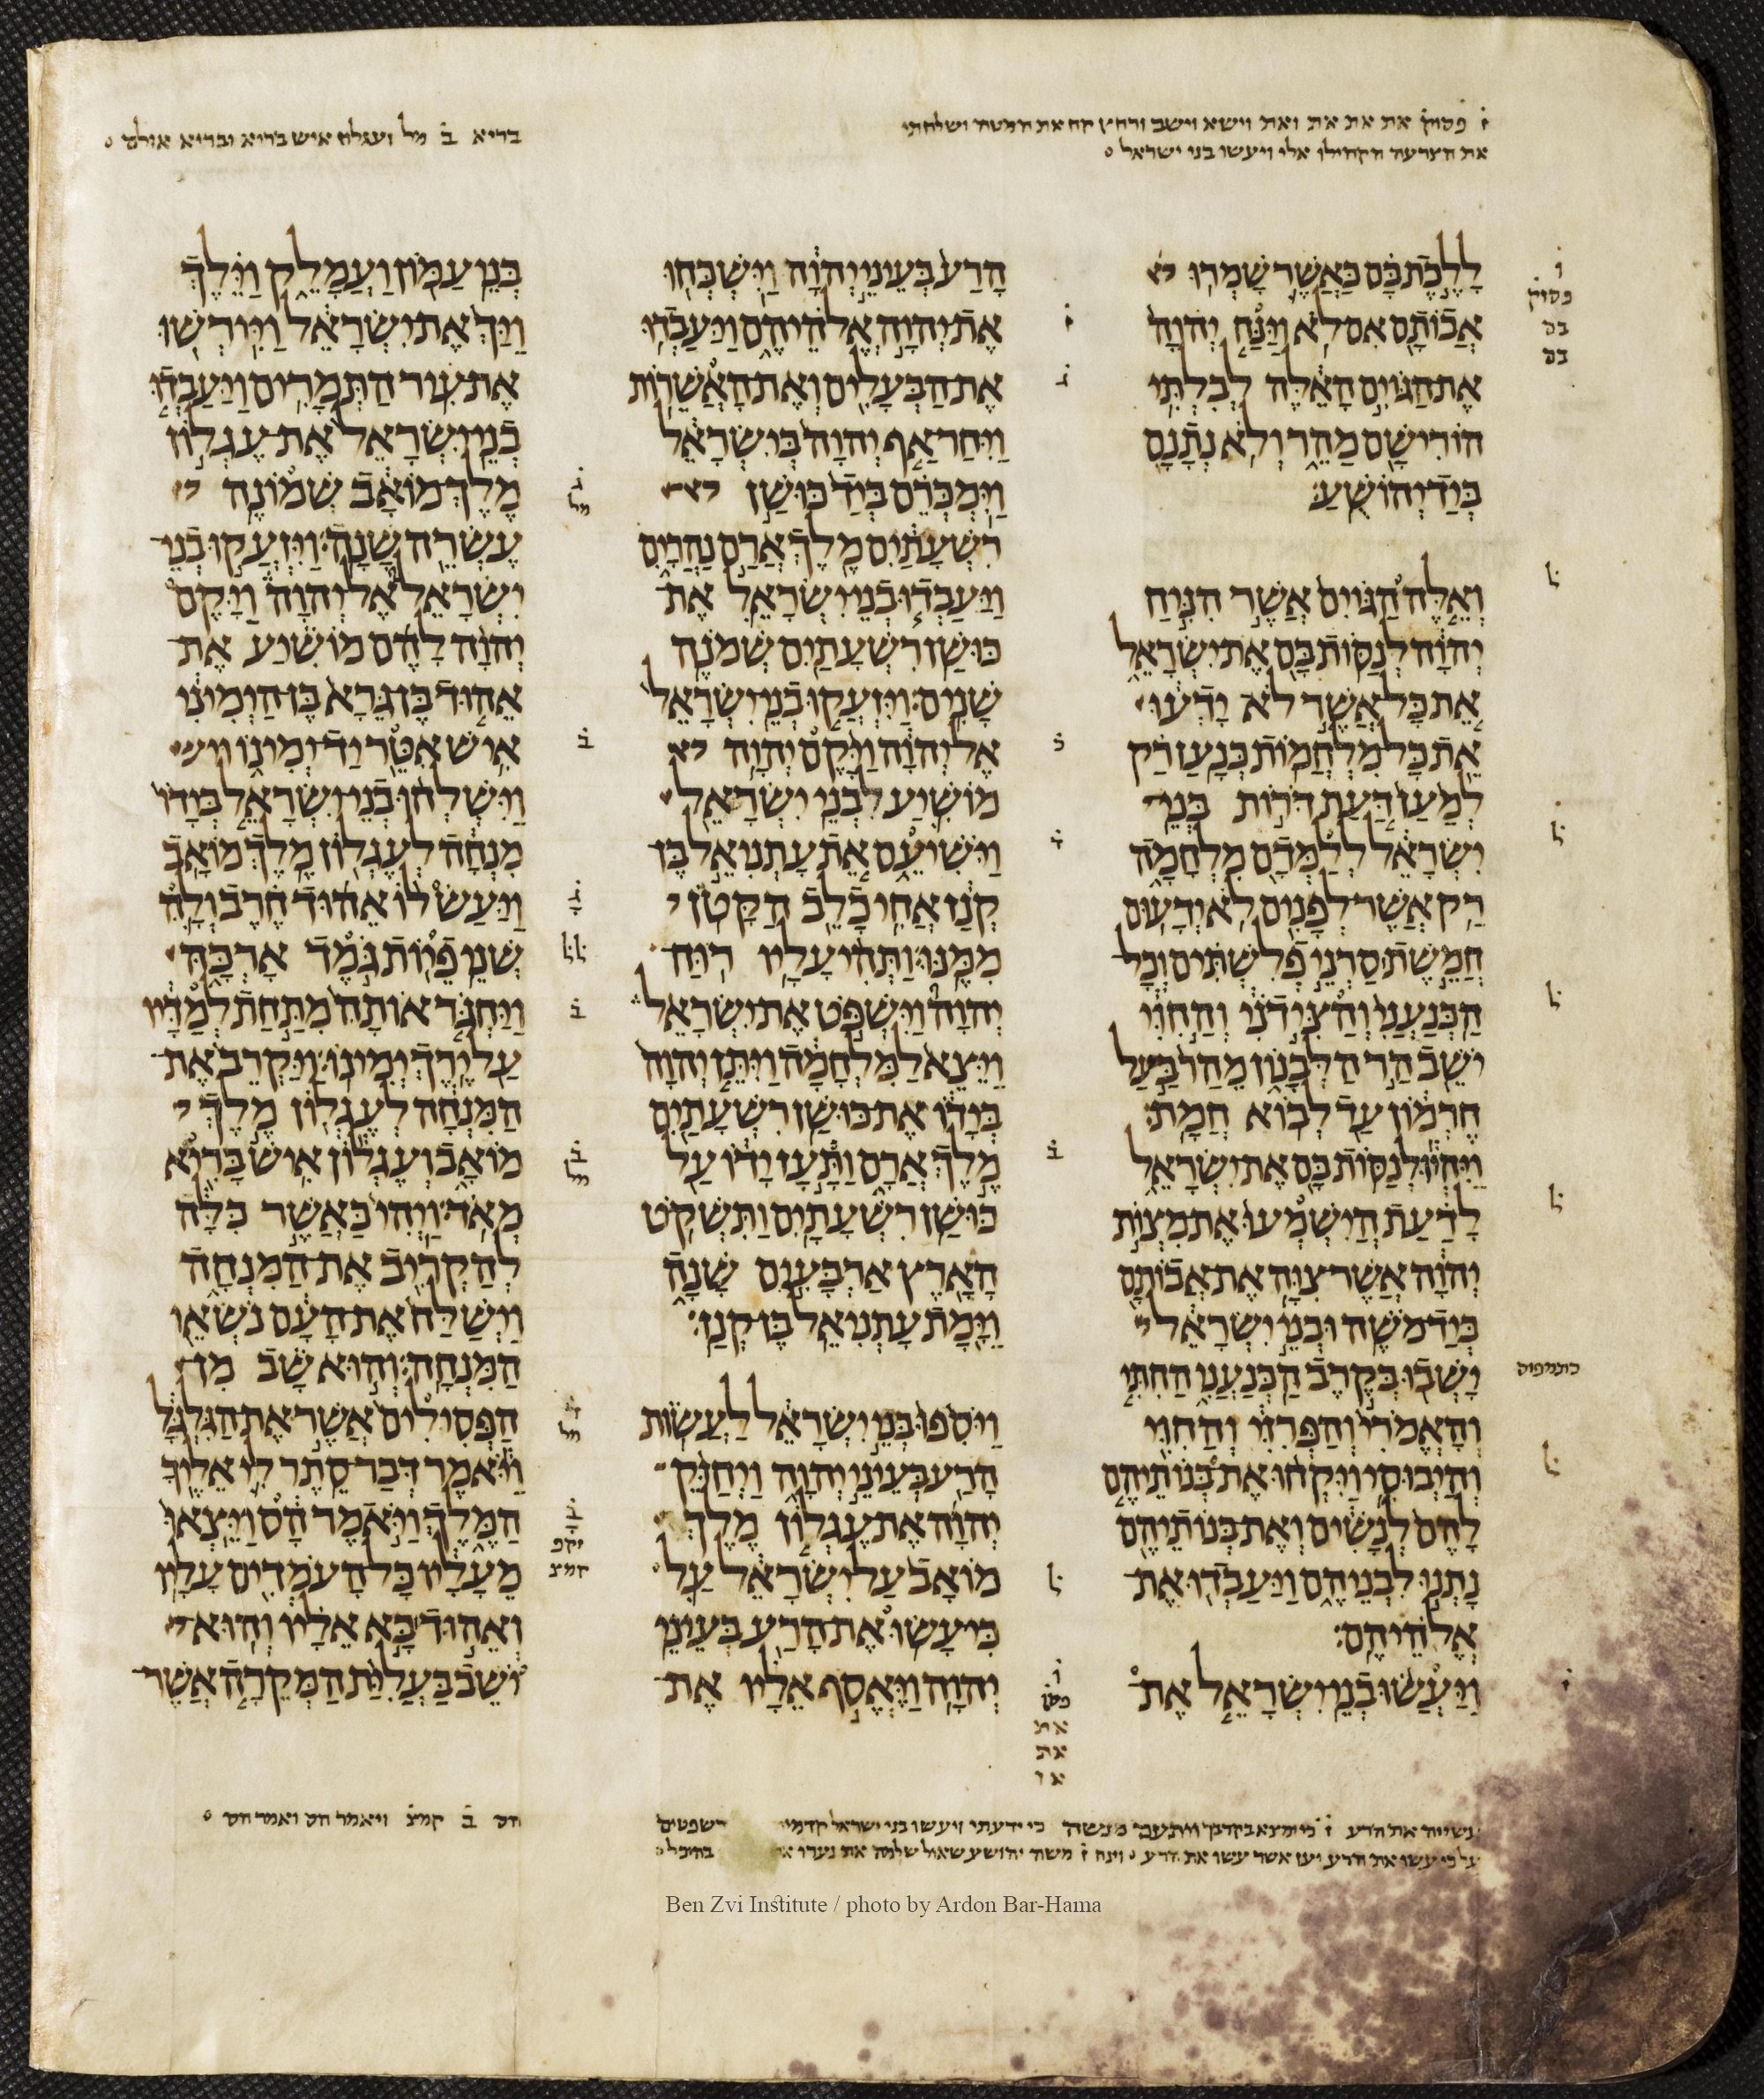 ז̇ פסוק̇ את את את ואת וישא וישב ורחץ קח את המטה ושלחתי
את הצרעה הקהילו אלי ויעשו בני ישראל
בריא ב̇ מל ועגלון איש בריא ובריא אולם
לָלֶכֶת בָּם כַּאֲשֶׁר שָׁמְרוּ
אֲבוֹתָם אִם לֹא וַיַּנַּח יְהוָה
אֶת הַגּוֹיִם הָאֵלֶּה לְבִלְתִּי
הוֹרִישָׁם מַהֵר וְלֹא נְתָנָם
בְּיַד יְהוֹשֻׁעַ׃
וְאֵלֶּה הַגּוֹיִם אֲשֶׁר הִנִּיחַ
יְהוָה לְנַסּוֹת בָּם אֶת יִשְׂרָאֵל
אֵת כָּל אֲשֶׁר לֹא יָדְעוּ
אֵת כָּל מִלְחֲמוֹת כְּנָעַן רַק
לְמַעַן דַּעַת דֹּרוֹת בְּנֵי
יִשְׂרָאֵל לְלַמְּדָם מִלְחָמָה
רַק אֲשֶׁר לְפָנִים לֹא יְדָעוּם
חֲמֵשֶׁת סַרְנֵי פְלִשְׁתִּים וְכָל
הַכְּנַעֲנִי וְהַצִּידֹנִי וְהַחִוִּי
יֹשֵׁב הַר הַלְּבָנוֹן מֵהַר בַּעַל
חֶרְמוֹן עַד לְבוֹא חֲמָת׃
וַיִּהְיוּ לְנַסּוֹת בָּם אֶת יִשְׂרָאֵל
לָדַעַת הֲיִשְׁמְעוּ אֶת מִצְוֺת
יְהוָה אֲשֶׁר צִוָּה אֶת אֲבוֹתָם
בְּיַד מֹשֶׁה וּבְנֵי יִשְׂרָאֵל
יָשְׁבוּ בְּקֶרֶב הַכְּנַעֲנִי הַחִתִּי
וְהָאֱמֹרִי וְהַפְּרִזִּי וְהַחִוִּי
וְהַיְבוּסִי וַיִּקְחוּ אֶת בְּנוֹתֵיהֶם
לָהֶם לְנָשִׁים וְאֶת בְּנוֹתֵיהֶם
נָתְנוּ לִבְנֵיהֶם וַיַּעַבְדוּ אֶת
אֱלֹהֵיהֶם׃
וַיַּעֲשׂוּ בְנֵי יִשְׂרָאֵל אֶת
הָרַע בְּעֵינֵי יְהוָה וַיִּשְׁכְּחוּ
אֶת יְהוָה אֱלֹהֵיהֶם וַיַּעַבְדוּ
אֶת הַבְּעָלִים וְאֶת הָאֲשֵׁרוֹת
וַיִּחַר אַף יְהוָה בְּיִשְׂרָאֵל
וַיִּמְכְּרֵם בְּיַד כּוּשַׁן
רִשְׁעָתַיִם מֶלֶךְ אֲרַם נַהֲרָיִם
וַיַּעַבְדוּ בְנֵי יִשְׂרָאֵל אֶת
כּוּשַׁן רִשְׁעָתַיִם שְׁמֹנֶה
שָׁנִים׃ וַיִּזְעֲקוּ בְנֵי יִשְׂרָאֵל
אֶל יְהוָה וַיָּקֶם יְהוָה
מוֹשִׁיעַ לִבְנֵי יִשְׂרָאֵל
וַיֹּשִׁיעֵם אֵת עָתְנִיאֵל בֶּן
קְנַז אֲחִי כָלֵב הַקָּטֹן
מִמֶּנּוּ׃ וַתְּהִי עָלָיו רוּחַ
יְהוָה וַיִּשְׁפֹּט אֶת יִשְׂרָאֵל
וַיֵּצֵא לַמִּלְחָמָה וַיִּתֵּן יְהוָה
בְּיָדוֹ אֶת כּוּשַׁן רִשְׁעָתַיִם
מֶלֶךְ אֲרָם וַתָּעָז יָדוֹ עַל
כּוּשַׁן רִשְׁעָתָיִם וַתִּשְׁקֹט
הָאָרֶץ אַרְבָּעִים שָׁנָה
וַיָּמָת עָתְנִיאֵל בֶּן קְנַז׃
וַיֹּסִפוּ בְּנֵי יִשְׂרָאֵל לַעֲשׂוֹת
הָרַע בְּעֵינֵי יְהוָה וַיְחַזֵּק
יְהוָה אֶת עֶגְלוֹן מֶלֶךְ
מוֹאָב עַל יִשְׂרָאֵל עַל
כִּי עָשׂוּ אֶת הָרַע בְּעֵינֵי
יְהוָה וַיֶּאֱסֹף אֵלָיו אֶת
בְּנֵי עַמּוֹן וַעֲמָלֵק וַיֵּלֶךְ
וַיַּךְ אֶת יִשְׂרָאֵל וַיִּירְשׁוּ
אֶת עִיר הַתְּמָרִים וַיַּעַבְדוּ
בְנֵי יִשְׂרָאֵל אֶת עֶגְלוֹן
מֶלֶךְ מוֹאָב שְׁמוֹנֶה
עֶשְׂרֵה שָׁנָה׃ וַיִּזְעֲקוּ בְנֵי
יִשְׂרָאֵל אֶל יְהוָה וַיָּקֶם
יְהוָה לָהֶם מוֹשִׁיעַ אֶת
אֵהוּד בֶּן גֵּרָא בֶּן הַיְמִינִי
אִישׁ אִטֵּר יַד יְמִינוֹ
וַיִּשְׁלְחוּ בְנֵי יִשְׂרָאֵל בְּיָדוֹ
מִנְחָה לְעֶגְלוֹן מֶלֶךְ מוֹאָב
וַיַּעַשׂ לוֹ אֵהוּד חֶרֶב וְלָהּ
שְׁנֵי פֵיוֹת גֹּמֶד אָרְכָּהּ
וַיַּחְגֹּר אוֹתָהּ מִתַּחַת לְמַדָּיו
עַל יֶרֶךְ יְמִינוֹ׃ וַיַּקְרֵב אֶת
הַמִּנְחָה לְעֶגְלוֹן מֶלֶךְ
מוֹאָב וְעֶגְלוֹן אִישׁ בָּרִיא
מְאֹד׃ וַיְהִי כַּאֲשֶׁר כִּלָּה
לְהַקְרִיב אֶת הַמִּנְחָה
וַיְשַׁלַּח אֶת הָעָם נֹשְׂאֵי
הַמִּנְחָה׃ וְהוּא שָׁב מִן
הַפְּסִילִים אֲשֶׁר אֶת הַגִּלְגָּל
וַיֹּאמֶר דְּבַר סֵתֶר לִי אֵלֶיךָ
הַמֶּלֶךְ וַיֹּאמֶר הָס וַיֵּצְאוּ
מֵעָלָיו כָּל הָעֹמְדִים עָלָיו
וְאֵהוּד בָּא אֵלָיו וְהוּא
יֹשֵׁב בַּעֲלִיַּת הַמְּקֵרָה אֲשֶׁר
את הרע ז̇ כי ימצא בקרבך ויתעב מנשה כי ידעתי ויעשו בני ישראל קדמי דשפטים
על כי עשו את הרע יען אשר עשו את הרע וינח ז̇ משה יהושע שאול שלמה את נערו בהיכל
הס ב̇ קמצ ויאמר הס ואמר הס
Ben Zvi Institute / photo by Ardon Bar-Hama